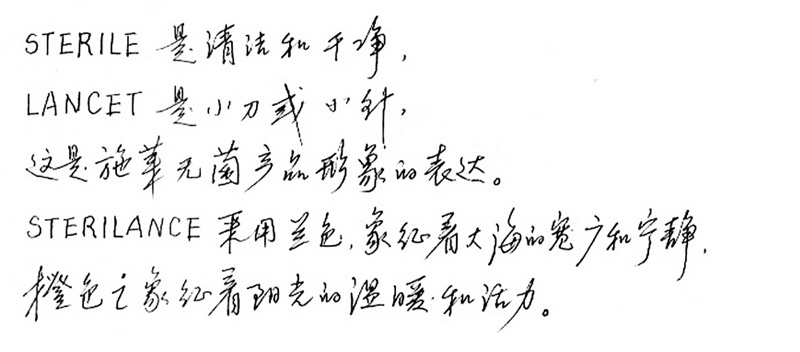 STERILE 是清洁和干净,
LANCET 是小刀或小针,
这是施莱无菌产品形象的表达。
STERILANCE 采用兰色,象征着大海的宽广和宁静,
橙色之象征着阳光的温暖和活力。